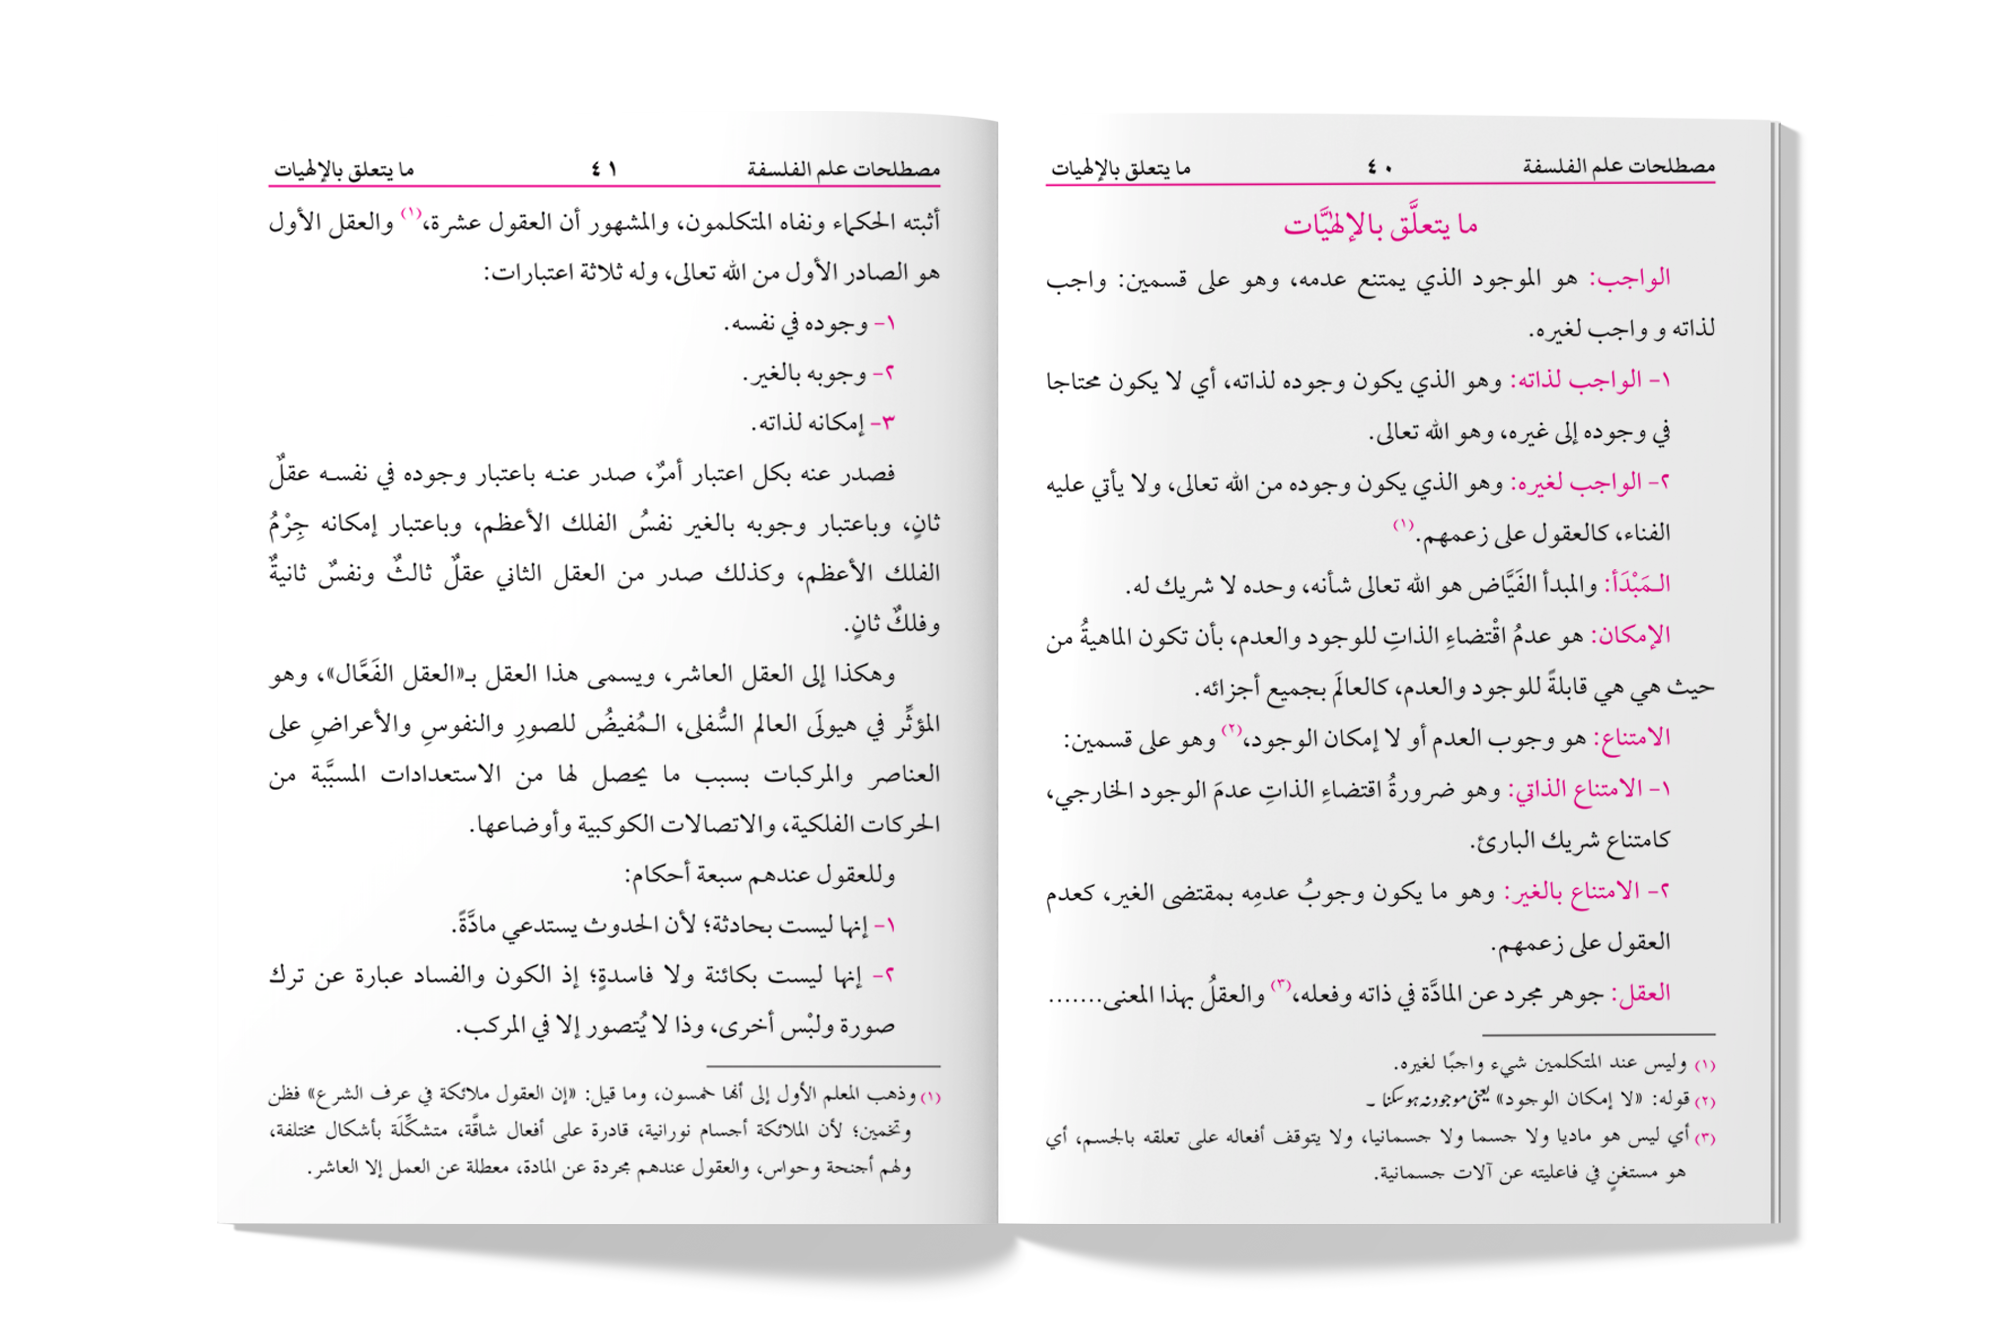 مصطلحات علم الفلسفة ٤٠ ما يتعلق بالإلهيات
ما يتعلَّق بالإلهيَّات
الواجب: هو الموجود الذي يمتنع عدمه، وهو على قسمين: واجب
لذاته و واجب لغيره.
١- الواجب لذاته: وهو الذي يكون وجوده لذاته، أي لا يكون محتاجا
في وجوده إلى غيره، وهو الله تعالى.
٢- الواجب لغيره: وهو الذي يكون وجوده من الله تعالى، ولا يأتي عليه
الفناء، كالعقول على زعمهم.(١)
الـمَبْدَأ: والمبدأ الفَيَّاض هو الله تعالى شأنه، وحده لا شريك له.
الإمكان: هو عدمُ اقْتضاءِ الذاتِ للوجود والعدم، بأن تكون الماهيةُ من
حيث هي هي قابلةً للوجود والعدم، كالعالَم بجميع أجزائه.
الامتناع: هو وجوب العدم أو لا إمكان الوجود،(٢) وهو على قسمين:
١- الامتناع الذاتي: وهو ضرورةُ اقتضاءِ الذاتِ عدمَ الوجود الخارجي،
كامتناع شريك البارئ.
٢- الامتناع بالغير: وهو ما يكون وجوبُ عدمِه بمقتضى الغير، كعدم
العقول على زعمهم.
العقل: جوهر مجرد عن المادَّة في ذاته وفعله،(٣) والعقلُ بهذا المعنى.......
(١) وليس عند المتكلمين شيء واجبًا لغيره.
(٢) قوله: «لا إمكان الوجود» یعنی موجود نہ ہو سکنا ۔
(٣) أي ليس هو ماديا ولا جسما ولا جسمانيا، ولا يتوقف أفعاله على تعلقه بالجسم، أي
هو مستغنٍ في فاعليته عن آلات جسمانية.
مصطلحات علم الفلسفة ٤١ ما يتعلق بالإلهيات
أثبته الحكماء ونفاه المتكلمون، والمشهور أن العقول عشرة،(١) والعقل الأول
هو الصادر الأول من الله تعالى، وله ثلاثة اعتبارات:
١- وجوده في نفسه.
٢- وجوبه بالغير.
٣- إمكانه لذاته.
فصدر عنه بكل اعتبار أمرٌ، صدر عنه باعتبار وجوده في نفسه عقلٌ
ثانٍ، وباعتبار وجوبه بالغير نفسُ الفلك الأعظم، وباعتبار إمكانه جِرْمُ
الفلك الأعظم، وكذلك صدر من العقل الثاني عقلٌ ثالثٌ ونفسٌ ثانيةٌ
وفلكٌ ثانٍ.
وهكذا إلى العقل العاشر، ويسمى هذا العقل بـ«العقل الفَعَّال»، وهو
المؤثِّر في هيولَى العالم السُّفلى، الـمُفيضُ للصورِ والنفوسِ والأعراضِ على
العناصر والمركبات بسبب ما يحصل لها من الاستعدادات المسبَّبة من
الحركات الفلكية، والاتصالات الكوكبية وأوضاعها.
وللعقول عندهم سبعة أحكام:
١- إنها ليست بحادثة؛ لأن الحدوث يستدعي مادَّةً.
٢- إنها ليست بكائنة ولا فاسدةٍ؛ إذ الكون والفساد عبارة عن ترك
صورة ولبْس أخرى، وذا لا يُتصور إلا في المركب.
(١) وذهب المعلم الأول إلى أنها خمسون، وما قيل: «إن العقول ملائكة في عرف الشرع» فظن
وتخمين؛ لأن الملائكة أجسام نورانية، قادرة على أفعال شاقَّة، متشكِّلَة بأشكال مختلفة،
ولهم أجنحة وحواس، والعقول عندهم مجردة عن المادة، معطلة عن العمل إلا العاشر.